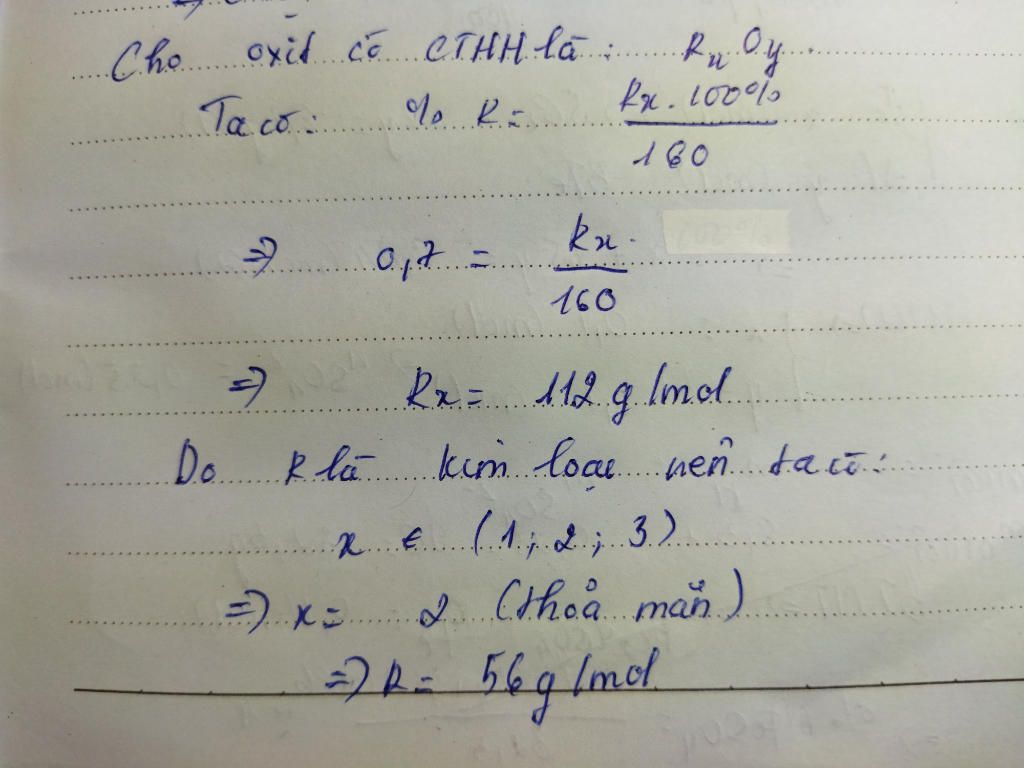 Cho oxit có CTHH là: RxOy.
Ta có: % R = Rx.100% / 160
=> 0,7 = Rx. / 160
=> Rx = 112 g/mol
Do R là kim loại nên ta có:
x ∈ (1; 2; 3)
=> x = 2 (thoả mãn)
=> R = 56 g/mol